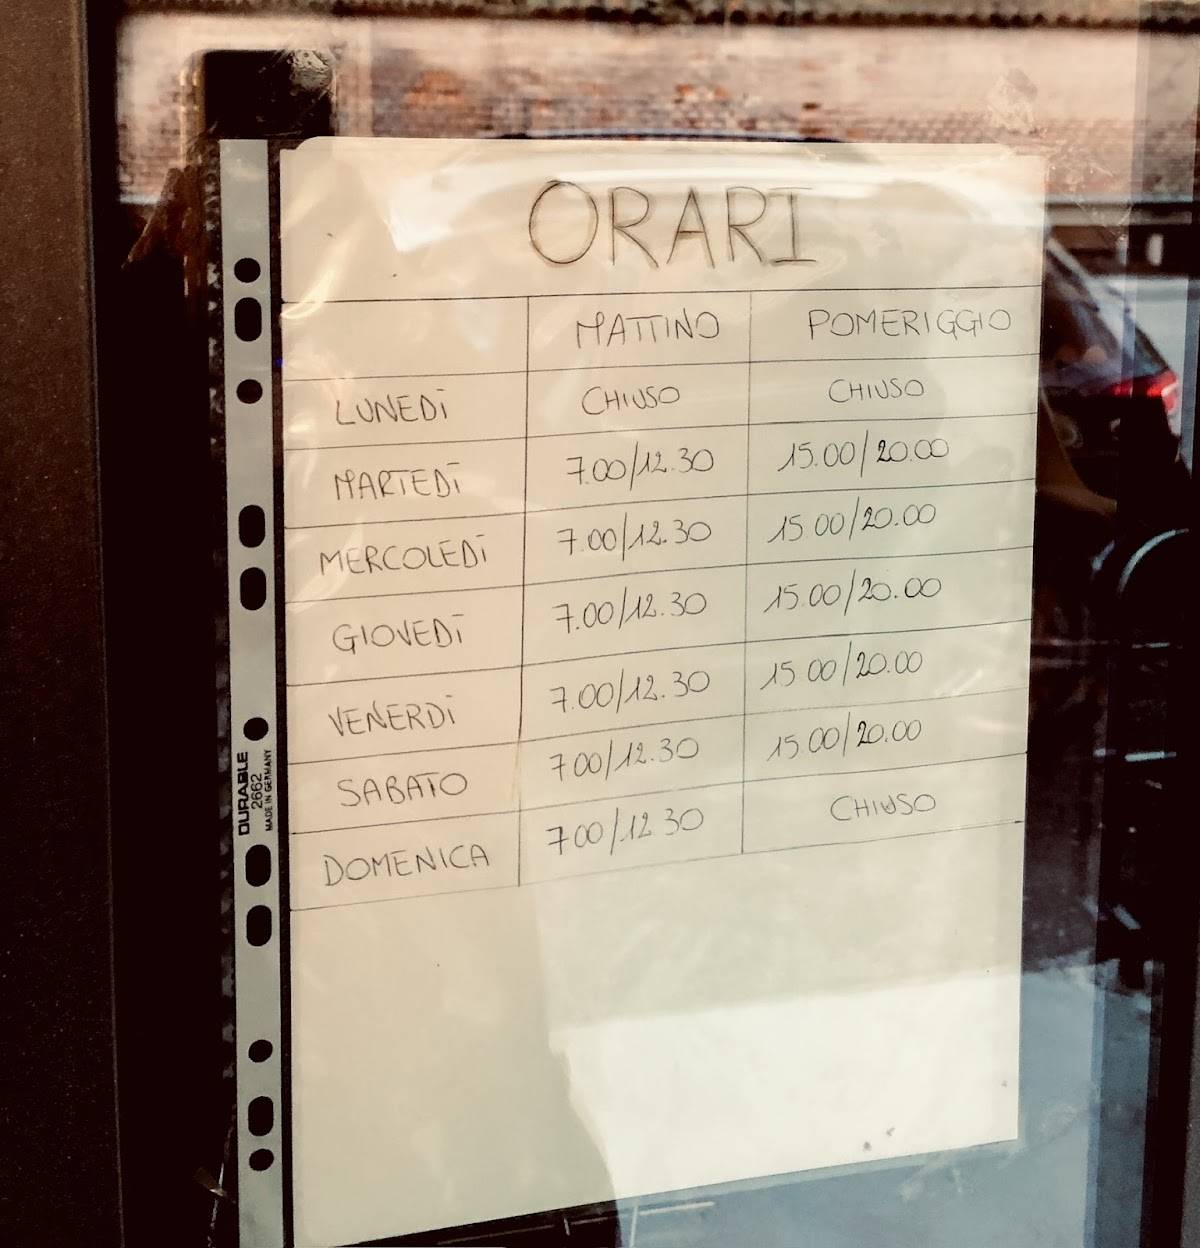 ORARI
MATTINO POMERIGGIO
LUNEDÌ CHIUSO CHIUSO
MARTEDÌ 7.00/12.30 15.00/20.00
MERCOLEDÌ 7.00/12.30 15.00/20.00
GIOVEDÌ 7.00/12.30 15.00/20.00
VENERDÌ 7.00/12.30 15 00/20.00
SABATO 7 00/12.30 15.00/20.00
DOMENICA 7 00/12 30 CHIUSO
DURABLE
2662
MADE IN GERMANY